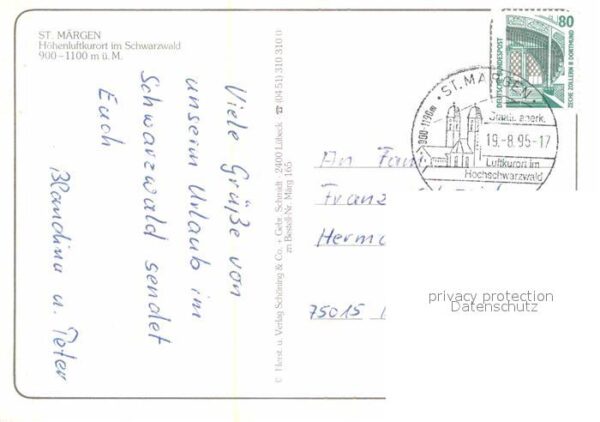 ST. MÄRGEN
Höhenluftkurort im Schwarzwald
900 – 1100 m ü. M.
Viele Grüße von
unserm Urlaub im
Schwarzwald sendet
Euch
Blandina u. Peter
© Herst. u. Verlag Schöning & Co. + Gebr. Schmidt · 2400 Lübeck · ☎ (04 51) 310 310 0
zu Bestell-Nr. Märg 165
80
DEUTSCHE BUNDESPOST
ZECHE ZOLLERN II DORTMUND
· ST. MÄRGEN ·
900-1100m
Staatl. anerk.
19.-8.95-17
Luftkurort im
Hochschwarzwald
An Fam
Franz
Herma
75015
privacy protection
Datenschutz